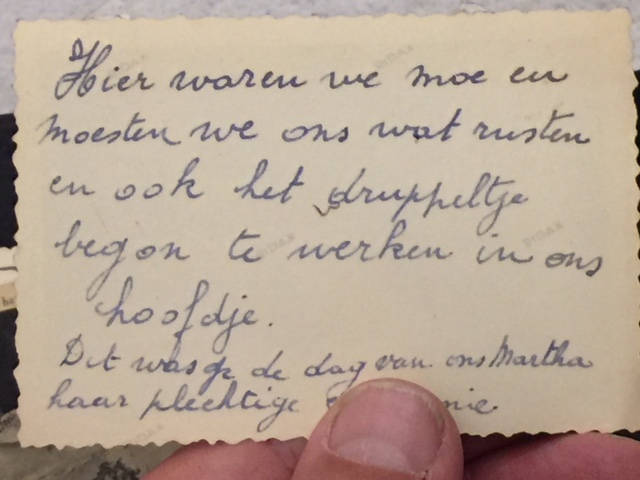 Hier waren we moe en
moesten we ons wat rusten
en ook het druppeltje
begon te werken in ons
hoofdje.
Dit was op de dag van ons Martha
haar plechtige
RIDAX
RIDAX
RIDAX
RIDAX